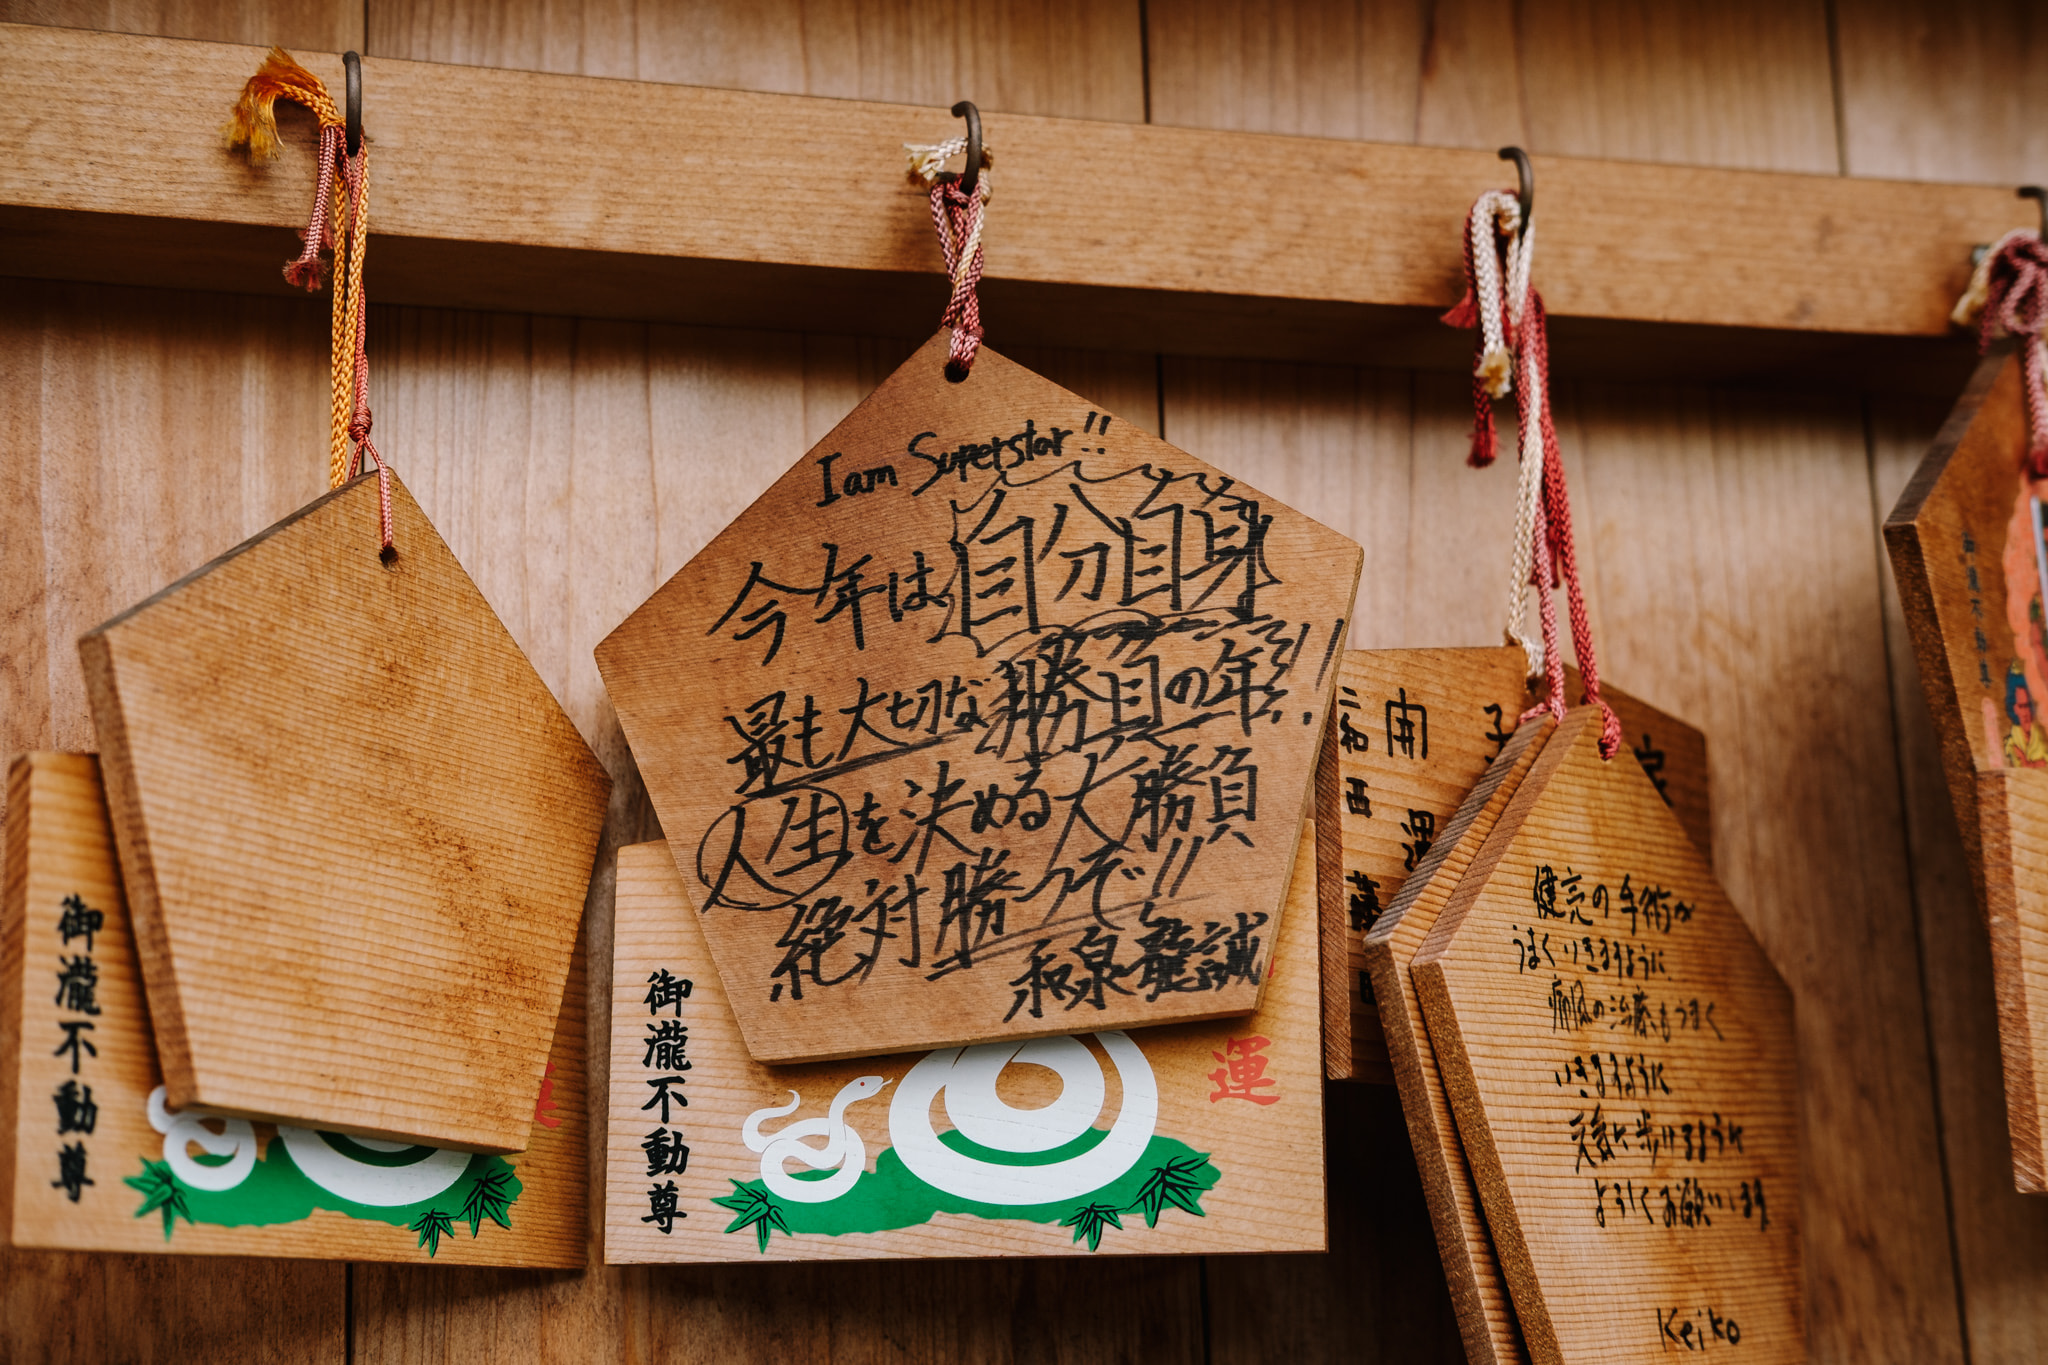 I am Superstar!!
今年は自分自身
最も大切な勝負の年!!
人生を決める大勝負
絶対勝つぞ!!
和泉龍誠
御瀧不動尊
御瀧不動尊
運
開運
健亮の手術が
うまくいきますように
痛風の治療もうまく
いきますように
元気に歩けるように
よろしくお願いします
Keiko